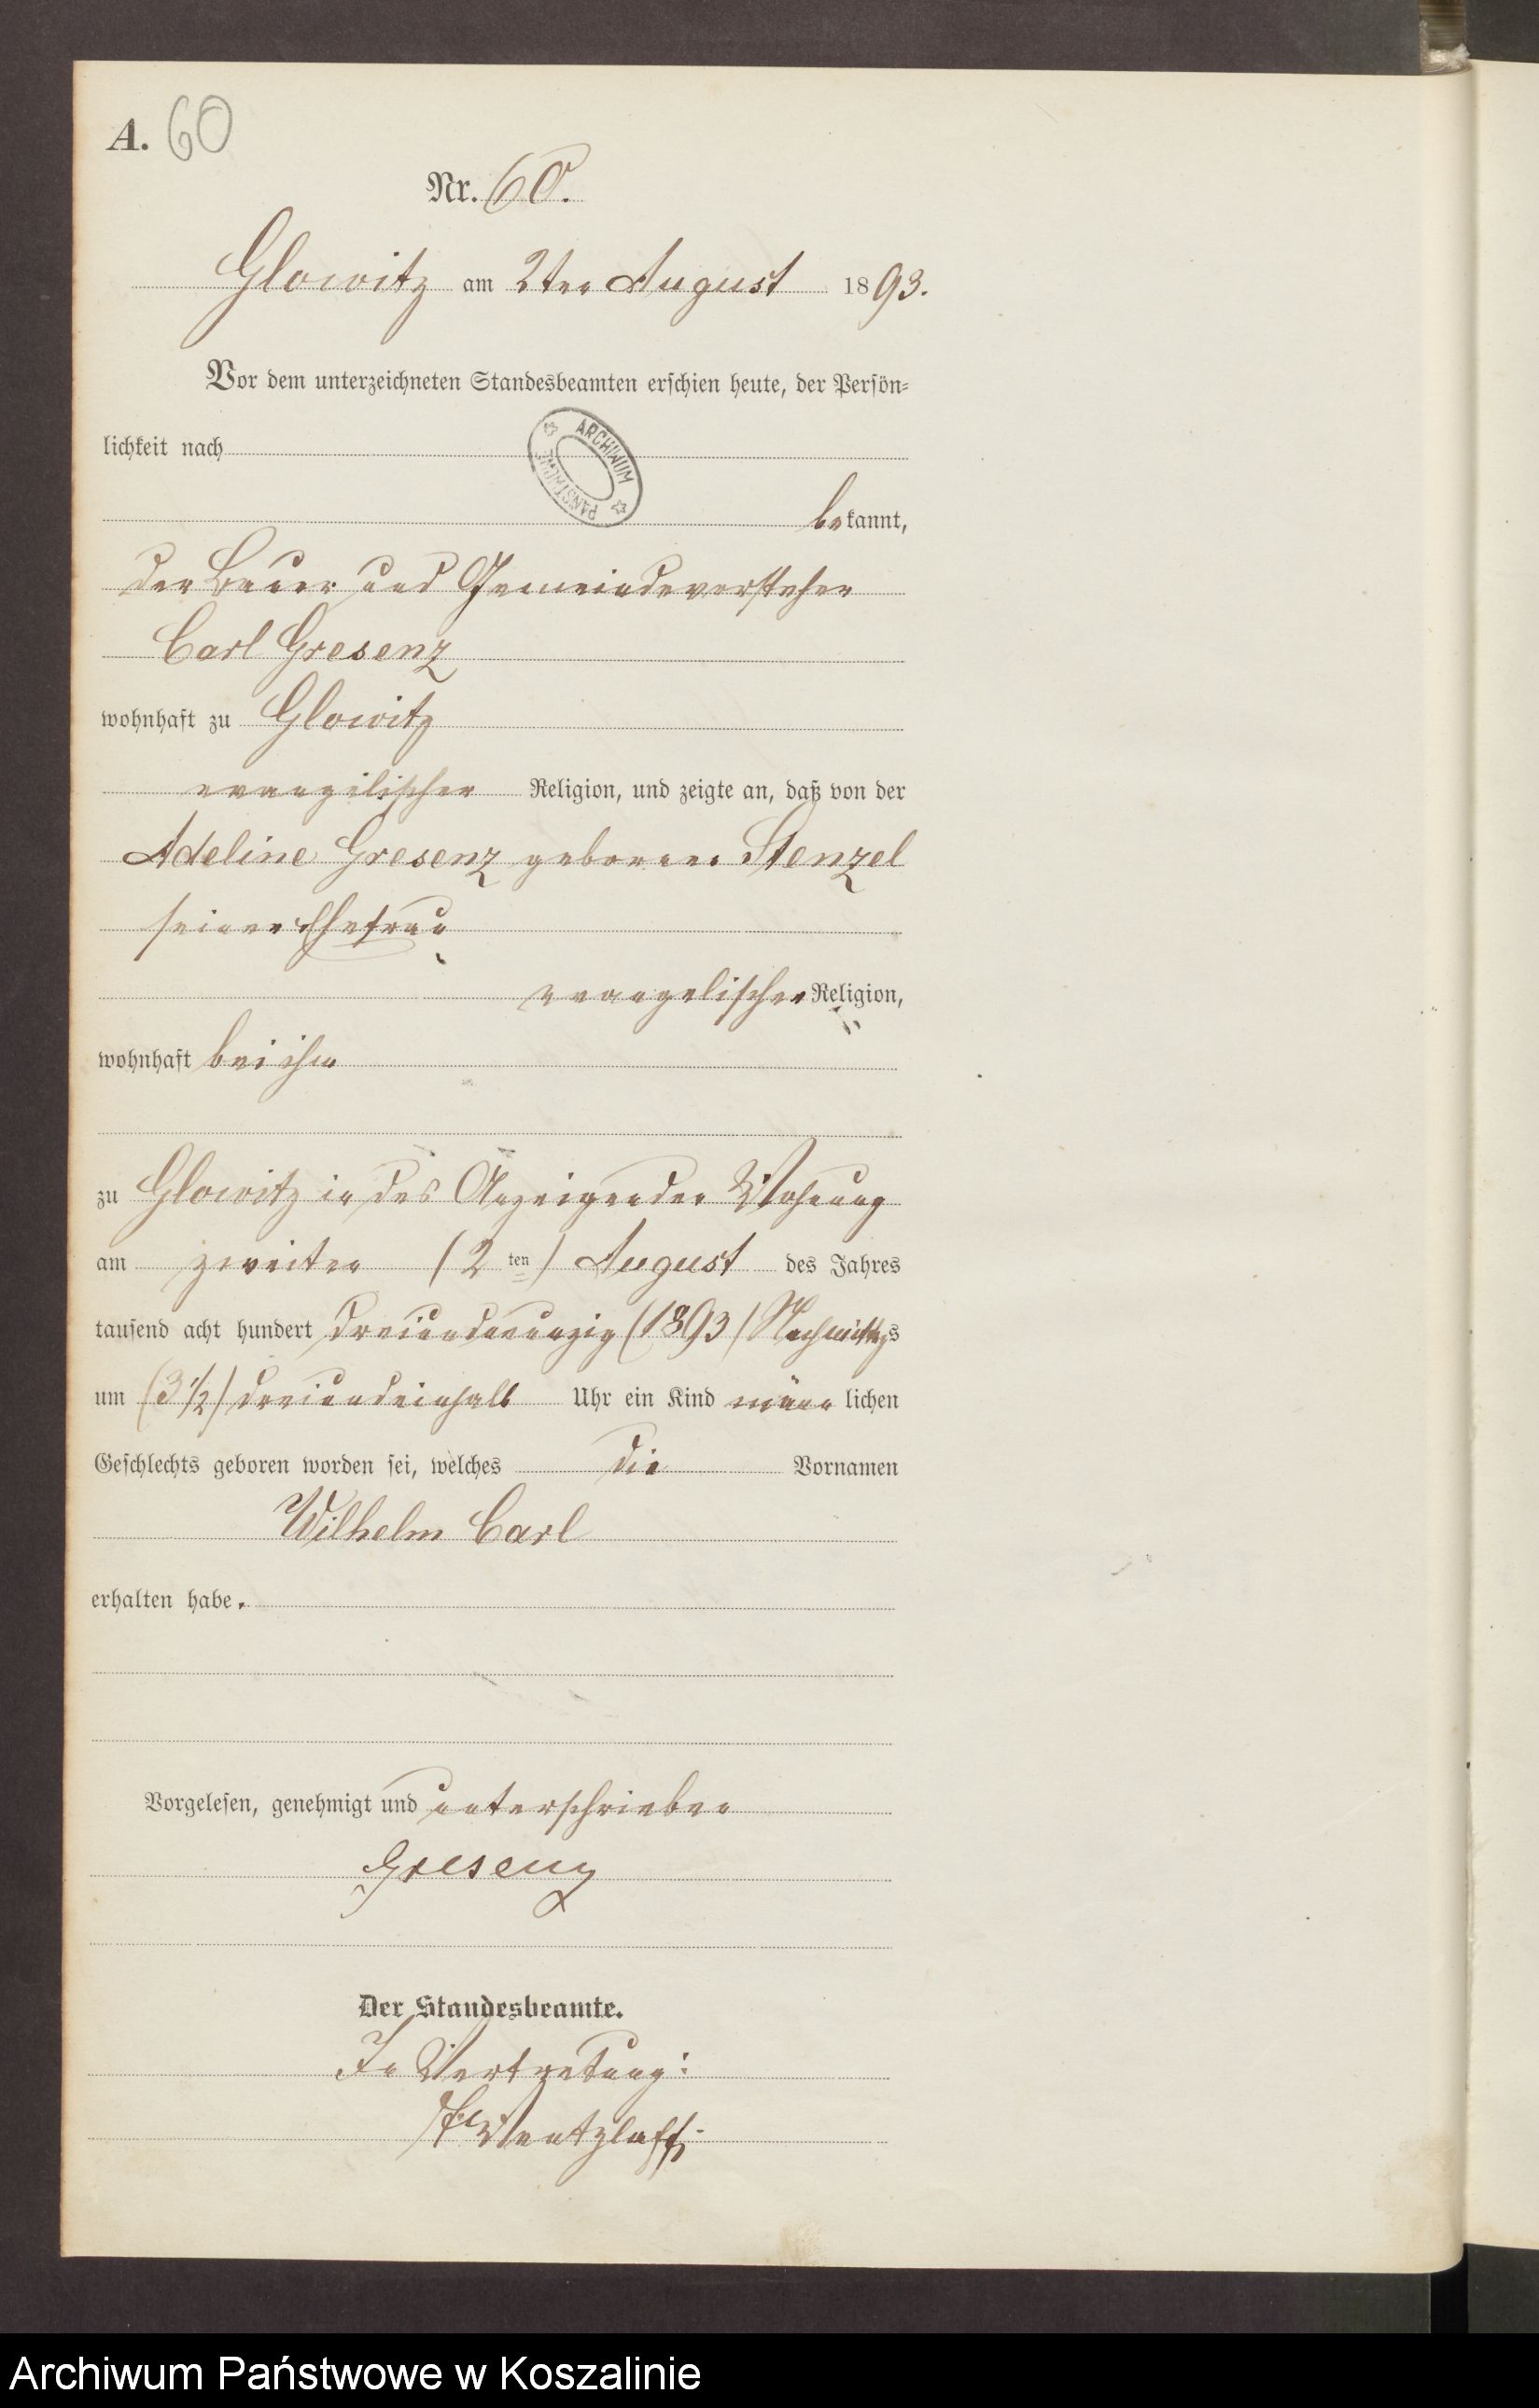 A. 60
Nr. 60.
Glowitz am 2ten August 1893.
Vor dem unterzeichneten Standesbeamten erschien heute, der Persön-
lichkeit nach
ARCHIWUM PAŃSTWOWE
bekannt,
der Bauer und Gemeindevorsteher
Carl Gresenz
wohnhaft zu Glowitz
evangelischer Religion, und zeigte an, daß von der
Adeline Gresenz geborene Stenzel
seiner Ehefrau
evangelischer Religion,
wohnhaft bei ihm
zu Glowitz in des Anzeigenden Wohnung
am zweiten (2 ten) August des Jahres
tausend acht hundert dreiundneunzig (1893) Nachmittags
um (3 1/2) dreiundeinhalb Uhr ein Kind männlichen
Geschlechts geboren worden sei, welches die Vornamen
Wilhelm Carl
erhalten habe.
Vorgelesen, genehmigt und unterschrieben
Gresenz
Der Standesbeamte.
In Vertretung:
Wentzlaff.
Archiwum Państwowe w Koszalinie